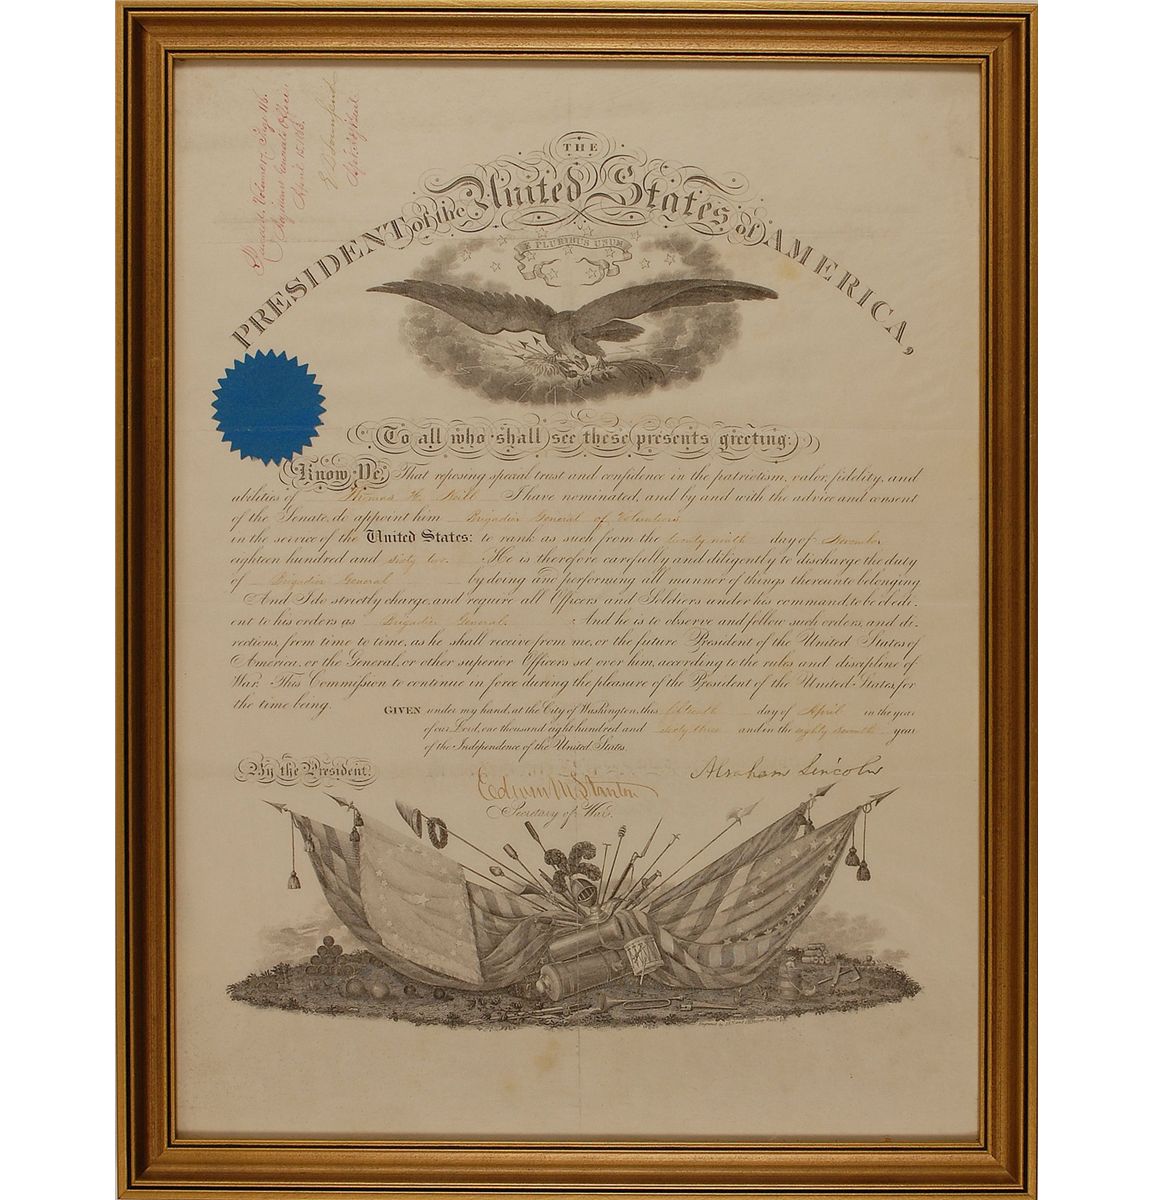 Recorded, Volume 17, Page 116.
Adjutant General's Office
April 15, 1863.
E D Townsend
THE
PRESIDENT of the United States of AMERICA,
E PLURIBUS UNUM
To all who shall see these presents greeting:
Know Ye, That reposing special trust and confidence in the patriotism, valor, fidelity, and
abilities of Thomas H. Neill I have nominated, and by and with the advice and consent
of the Senate, do appoint him Brigadier General of Volunteers
in the service of the United States: to rank as such from the twenty ninth day of November
eighteen hundred and sixty two. He is therefore carefully and diligently to discharge the duty
of Brigadier General by doing and performing all manner of things thereunto belonging
And I do strictly charge, and require all Officers and Soldiers under his command, to be obedi-
ent to his orders as Brigadier General. And he is to observe and follow such orders, and di-
rections, from time to time, as he shall receive from me, or the future President of the United States of
America, or the General, or other superior Officers set over him, according to the rules and discipline of
War. This Commission to continue in force during the pleasure of the President of the United States, for
the time being.
GIVEN under my hand, at the City of Washington, this fifteenth day of April in the year
of our Lord, one thousand eight hundred and sixty three and in the eighty seventh year
of the Independence of the United States.
By the President.
Abraham Lincoln
Edwin M Stanton
Secretary of War.